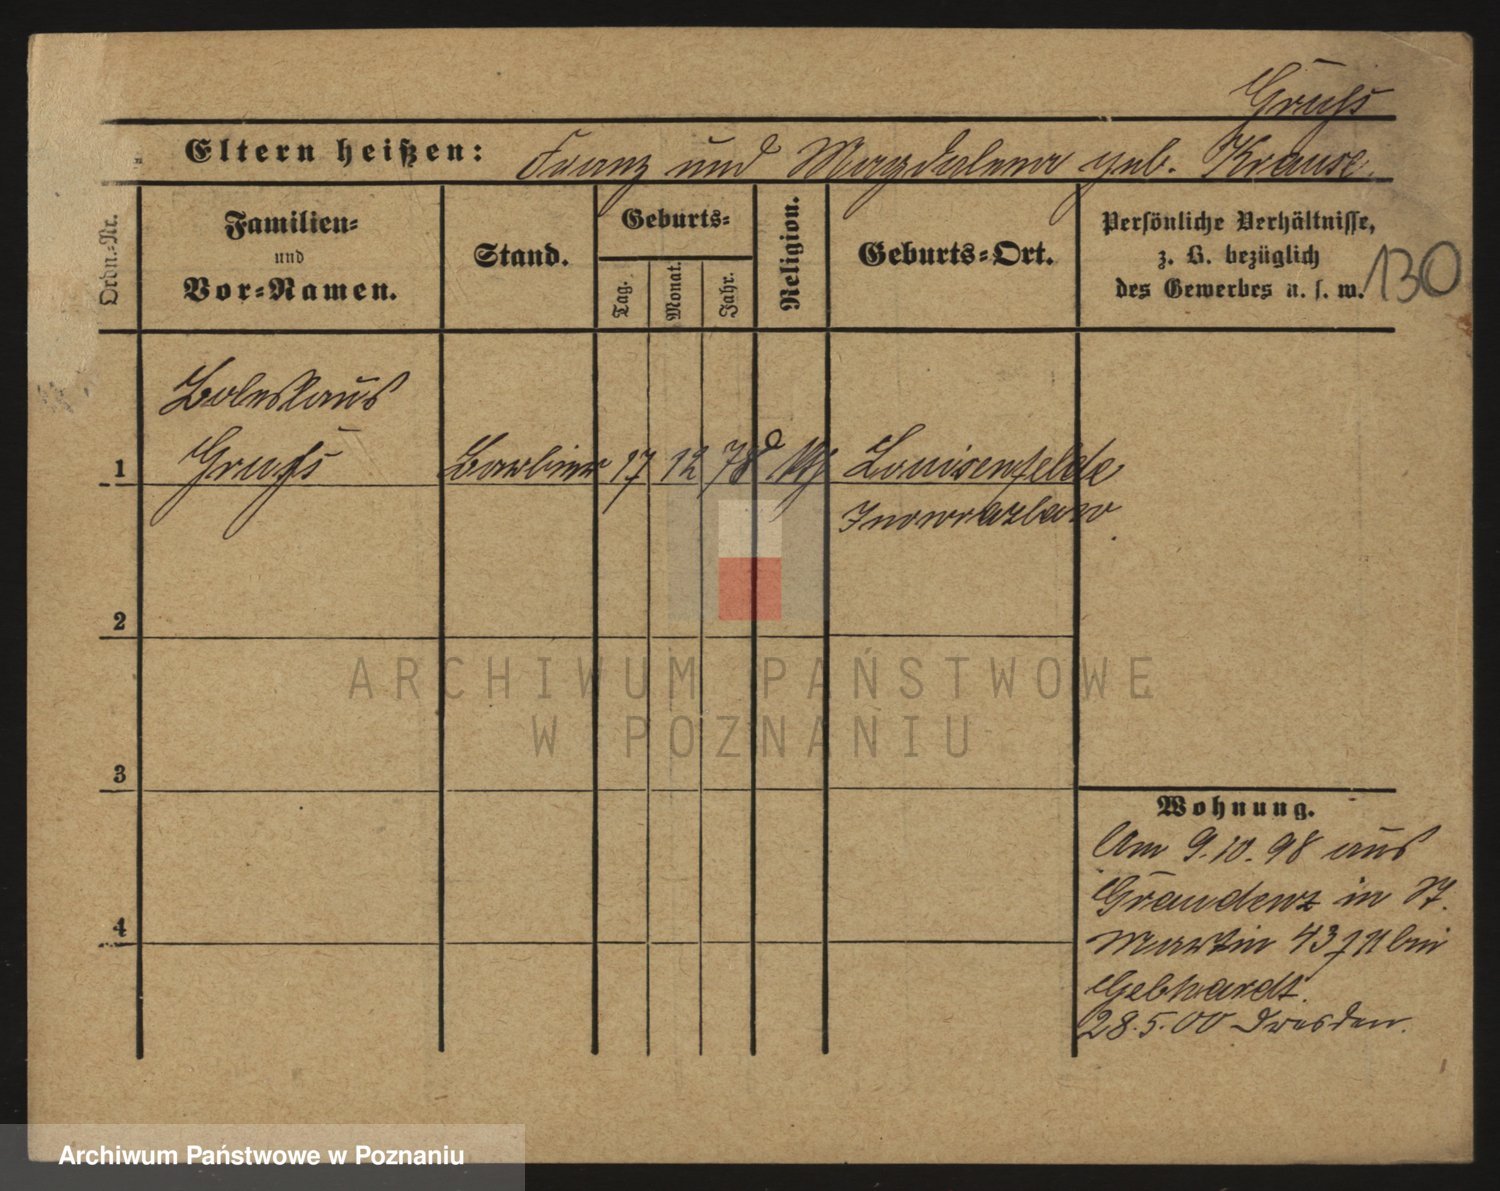 Gruhs
Eltern heißen: Franz und Magdalena geb. Krause.
Ordn.-Nr.
Familien-
und
Vor-Namen.
Stand.
Geburts-
Tag.
Monat.
Jahr.
Religion.
Geburts-Ort.
Persönliche Verhältnisse,
z. B. bezüglich
des Gewerbes u. s. w.
130
Boleslaus
1 Gruhs Barbier 17 12 78 Louisenfelde
Inowrazlaw
2
3
4
Wohnung.
Am 9.10.98 aus
Graudenz in St.
Martin 43 bei
Gebhardt.
28.5.00 Dresden.
ARCHIWUM PAŃSTWOWE
W POZNANIU
Archiwum Państwowe w Poznaniu